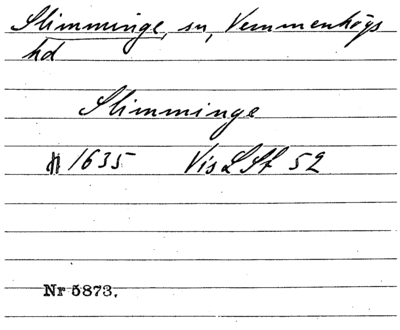 Slimminge, sn, Vemmenhögs
hd
Slimminge
1635 Vis LSt 52
Nr 5873.